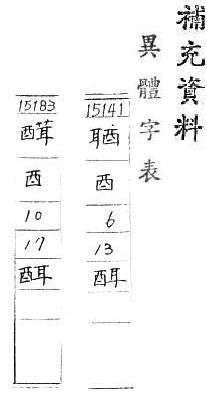 補充資料
異體字表
15141
酉
6
13
15183
酉
10
17